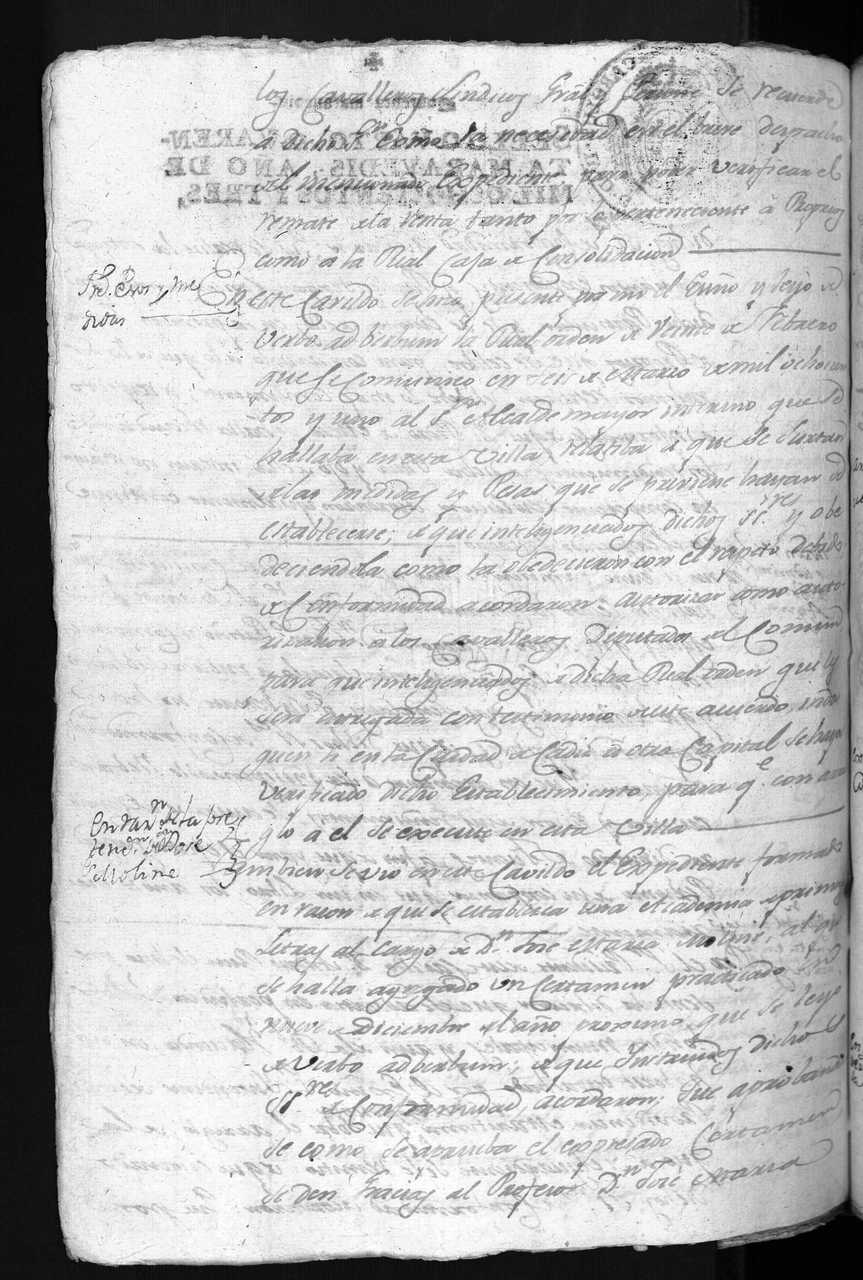 los Cavalleros Sindicos Gral y Perso.ro se recuerde
a dicho Sor. como la necesidad en el breve despacho
del mencionado Expediente para poder verificar el
remate de la venta tanto por lo perteneciente á Propios
como á la Real Caja de Consolidacion
Sre. Pesos y Me
didas
En este Cavildo se hizo presente por mi el Essno y leyo de
Verbo ad berbum la Real orden de veinte de Febrero
que se comunicó en seis de Marzo de mil ochocien
tos y uno al Sor. Alcalde mayor interino que se
hallaba en esta Villa, relatiba á que se surtan
de las medidas y Pesas que se previene hayan de
establecerse; de que inteligenciados dichos SSres. y obe
deciendola como la obedecieron con el respeto debido
de Conformidad acordaron: autorizar como auto
rizaron á los Cavalleros Diputados del Comun
para que inteligenciados de dicha Real orden que les
será entregada con testimonio de este acuerdo, inda
guen si en la Ciudad de Cadiz ú otra Capital se haya
verificado dicho Establecimiento, para qe. con arre
glo a el se execute en esta Villa
En razn. de la pre
tencn. de Dn. Jose
Moline
Tambien se vió en este Cavildo el Expediente formado
en razon de que se establezca una Academia de primeras
Letras al cargo de Dn. José Maria Moliné, al qe.
se halla agregado un Certamen practicado en
nueve de Diciembre del año proximo, que se leyó
de Verbo ad berbum; de que instruidos dichos
SSres. de Conformidad, acordaron: Que aprobando
se como se aprueba el expresado Certamen
se den Gracias al Profesor Dn. José Maria